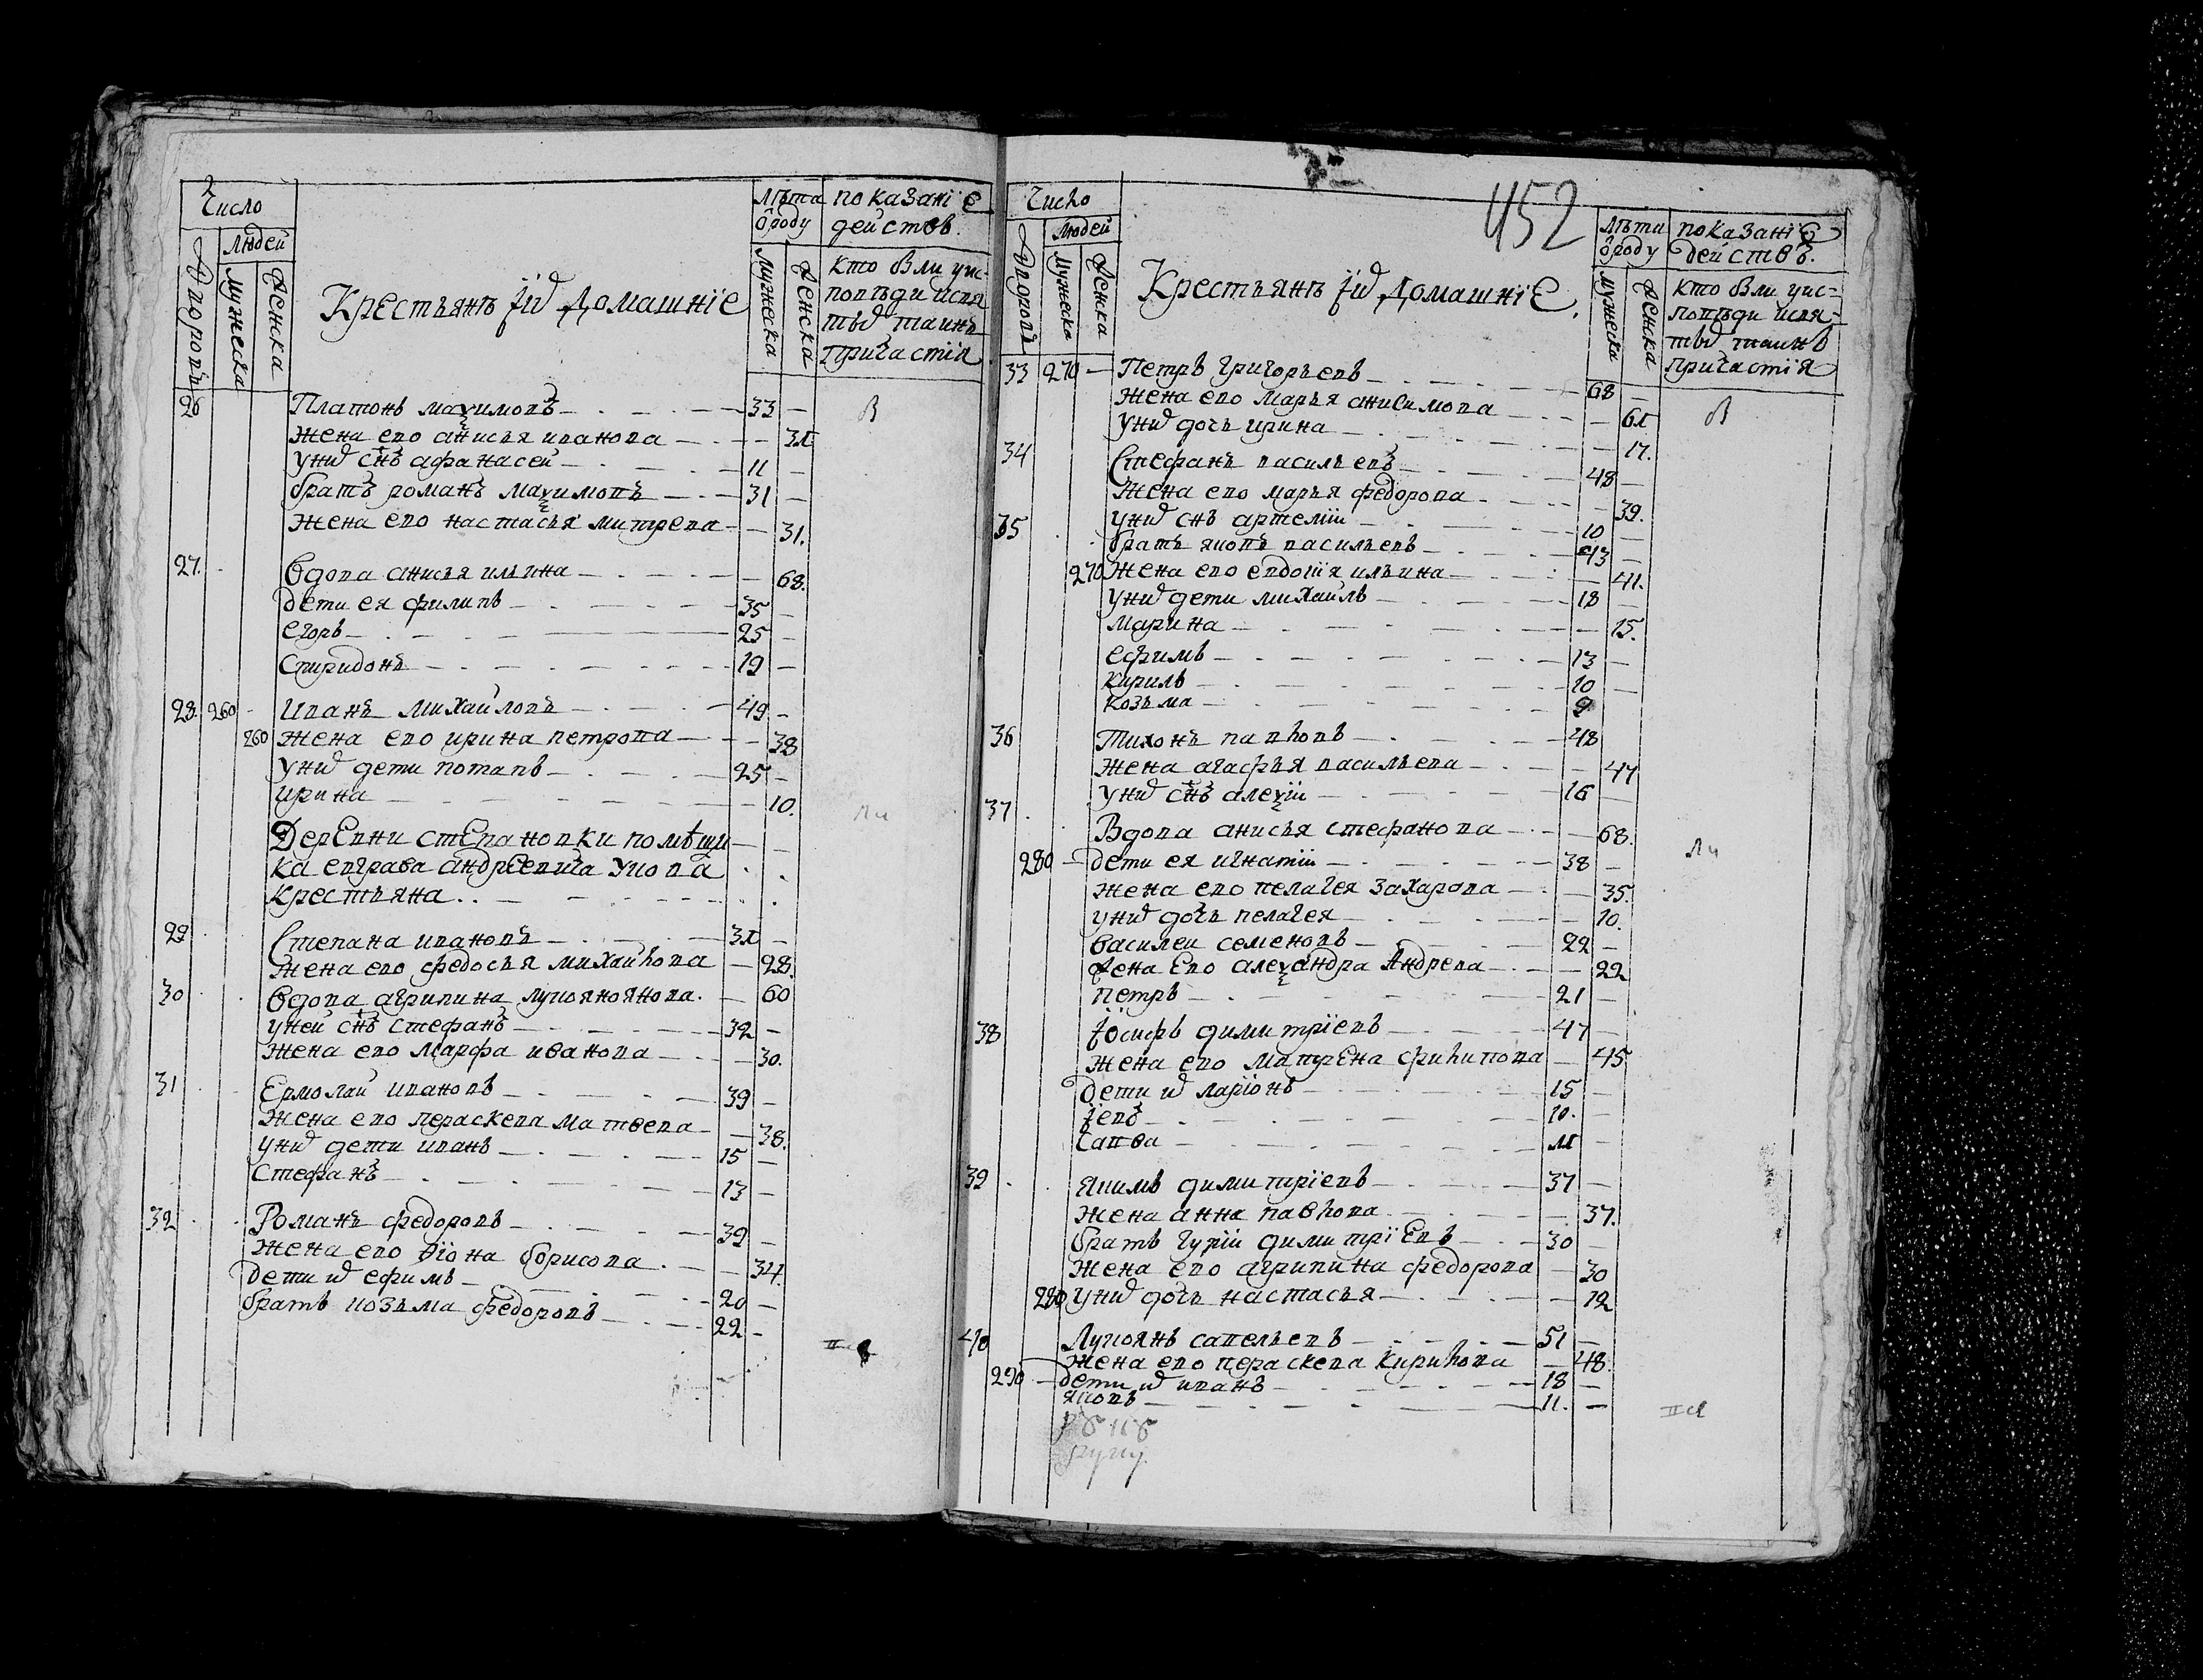 Число
Людей
Дворовъ
Мужеска
Женска
Крестьянъ їихъ Домашнїе
Лѣта
ѿроду
Мужеска
Женска
показанїе
действ.
кто были уис-
поведи исвя
тыхъ таинъ
причастїя
26 Платонъ маѯимовъ 33 В
жена ево анисья иванова
унихъ снъ афанасей 11
братъ романъ маѯимовъ 31
жена ево настасья митрева 31.
27. Вдова анисья ильина 68.
дети ея филипъ 35
егоръ 25
Спиридонъ 19
28. 260 Иванъ михайловъ 49
260 жена ево ирина петрова 38
унихъ дети потапъ 25
ирина 10.
Деревни степановки помѣщи
ка евграва андреевича
крестьяна
29 Степана ивановъ
жена ево федосья михайлова 28.
30 Вдова агрипина лукояноянова. 60
уней снъ стефанъ 32
жена ево Марфа иванова 30.
31 Ермолай ивановъ 39
жена ево параскева матвева 38.
унихъ дети иванъ 15
Стефанъ 13
32 Романъ федоровъ 39
жена ево борисова 34.
дети ихъ ефимъ 20
братъ козьма федоровъ 22
452
Число
Людей
Дворовъ
Мужеска
Женска
Крестьянъ їихъ Домашнїе.
Лѣта
ѿроду
мужеска
Женска
показанїе
действъ.
кто были уис-
поведи исвя-
тыхъ таинъ
причастїя
33 270 Петръ григорьевъ 68
жена ево марья анисимова В
унихъ дочь ирина 17.
34 Стефанъ васильевъ 48
жена ево марья федорова 39.
унихъ снъ артемїй 10
35 братъ яковъ васильевъ 43
270 жена ево евдокїя ильина 41.
унихъ дети михайлъ 18
марина 15.
ефимъ 13
кирилъ 10
козьма 9
36 Тихонъ павловъ 48
жена агафья васильева 47
унихъ снъ алеѯїй 16
37 Вдова анисья стефанова 68.
280 дети ея игнатїй 38
жена ево пелагея захарова 35.
унихъ дочь пелагея 10.
василей семеновъ 22
жена ево алеѯандра Андрева 22
петръ 21
38 Їосифъ димитрїевъ 47
жена ево матрена филипова 45
дети ихъ ларїонъ 15
їевъ 10.
Савва
39 Якимъ димитрїевъ 37
жена анна павлова 37.
братъ гурїй димитрїевъ 30
жена ево агрипина федорова 30
280 унихъ дочь настасья 12
40 Лукоянъ савельевъ 51
жена ево параскева кирилова 48.
290 дети ихъ иванъ 18
яковъ 11.